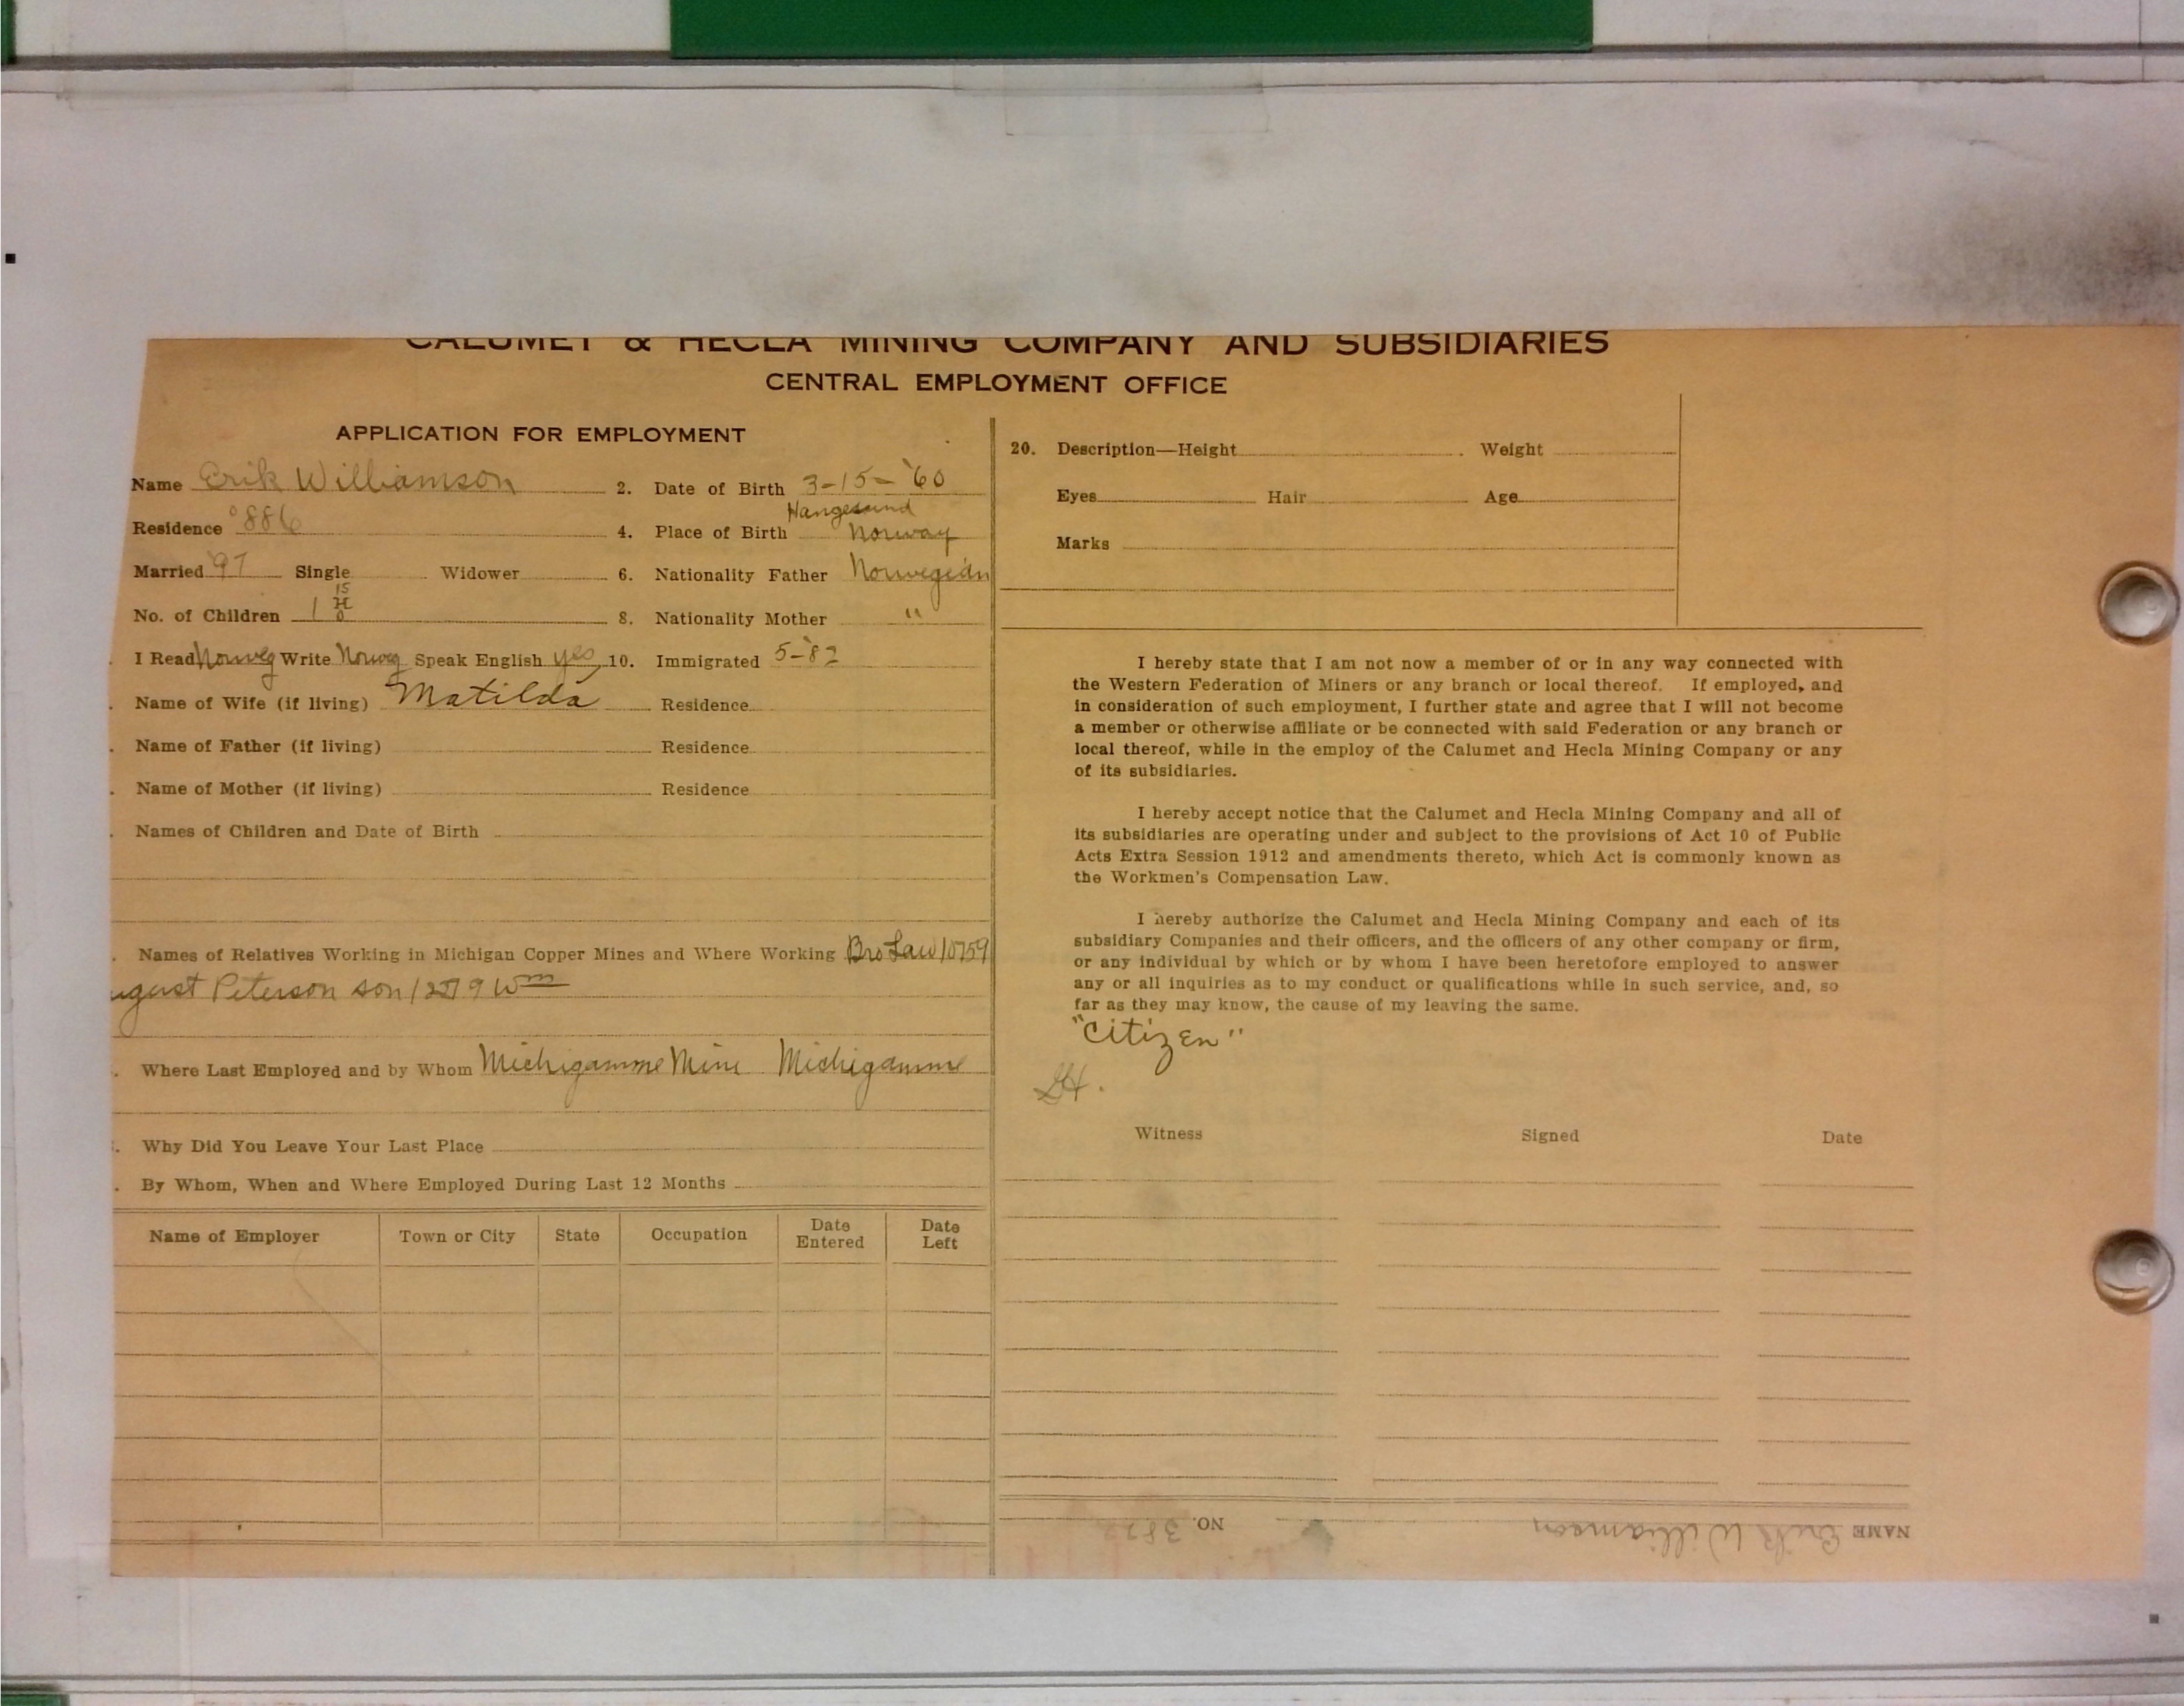 CALUMET & HECLA MINING COMPANY AND SUBSIDIARIES
CENTRAL EMPLOYMENT OFFICE
APPLICATION FOR EMPLOYMENT
Name Erik Williamson 2. Date of Birth 3-15-'60
Residence 886 4. Place of Birth Haugesund Norway
Married '97 Single Widower 6. Nationality Father Norwegian
No. of Children 1 15 8. Nationality Mother "
I Read Norweg Write Norweg Speak English yes 10. Immigrated 5-'82
Name of Wife (if living) Matilda Residence
Name of Father (if living) Residence
Name of Mother (if living) Residence
Names of Children and Date of Birth
Names of Relatives Working in Michigan Copper Mines and Where Working Bro Law 10759
ugust Peterson son 12579 Wm
Where Last Employed and by Whom Michigamme Mine Michigamme
Why Did You Leave Your Last Place
By Whom, When and Where Employed During Last 12 Months
Name of Employer Town or City State Occupation Date Entered Date Left
20. Description—Height Weight
Eyes Hair Age
Marks
I hereby state that I am not now a member of or in any way connected with
the Western Federation of Miners or any branch or local thereof. If employed, and
in consideration of such employment, I further state and agree that I will not become
a member or otherwise affiliate or be connected with said Federation or any branch or
local thereof, while in the employ of the Calumet and Hecla Mining Company or any
of its subsidiaries.
I hereby accept notice that the Calumet and Hecla Mining Company and all of
its subsidiaries are operating under and subject to the provisions of Act 10 of Public
Acts Extra Session 1912 and amendments thereto, which Act is commonly known as
the Workmen's Compensation Law.
I hereby authorize the Calumet and Hecla Mining Company and each of its
subsidiary Companies and their officers, and the officers of any other company or firm,
or any individual by which or by whom I have been heretofore employed to answer
any or all inquiries as to my conduct or qualifications while in such service, and, so
far as they may know, the cause of my leaving the same.
"Citizen"
Witness Signed Date
NAME Erik Williamson NO.